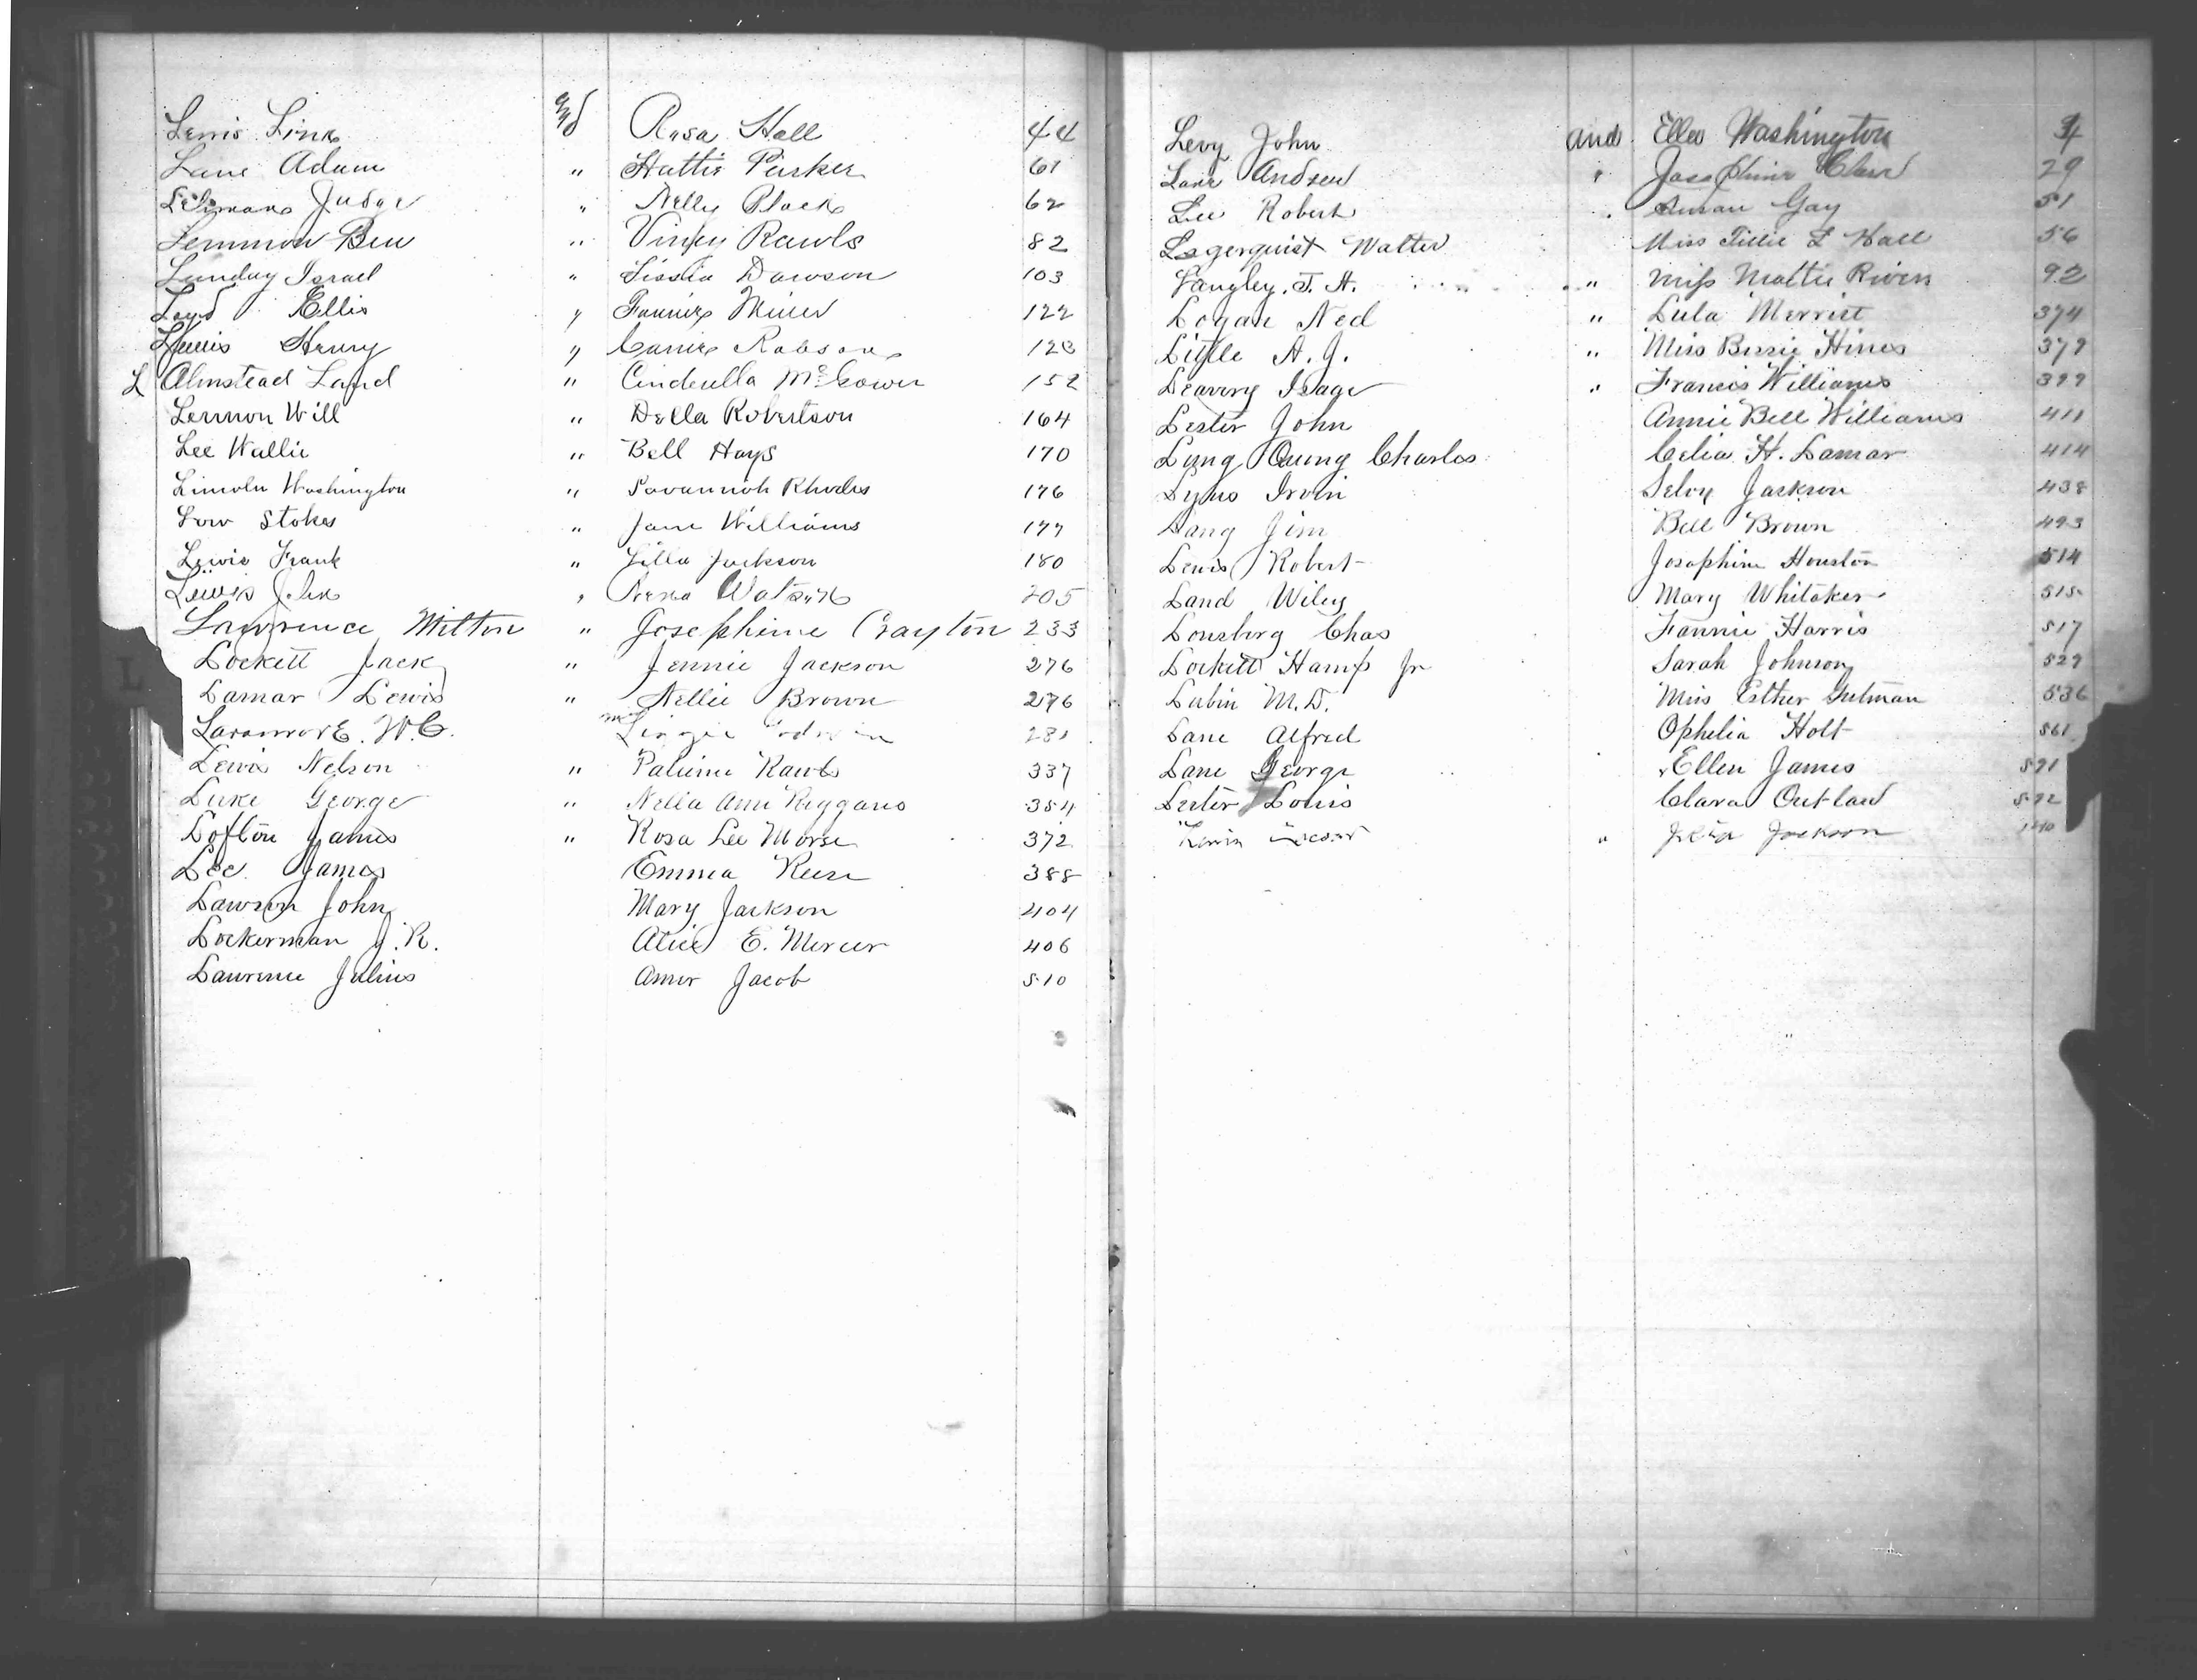 Lewis Link and Rosa Hall 44
Lane Adam " Hattie Parker 61
Judge " Nelly Black 62
Lemmon Ben " Viney Rawls 82
Lunday Israel " Lissia Dawson 103
Loyd Ellis " Fannie Miller 122
Lewis Henry " Carrie Robson 123
L Almstead Land " Cinderella McGower 152
Lennon Will " Della Robertson 164
Lee Wallie " Bell Hays 170
Lincoln Washington " Savannah Rhodes 176
Low Stokes " Jane Williams 177
Lewis Frank " Lilla Jackson 180
Lewis John " Watson 205
Lawrence Milton " Josephine Crayton 233
Lockett Jack " Jennie Jackson 276
Lamar Lewis " Nellie Brown 276
Laramore W.C. 281
Lewis Nelson " Rawls 337
Luke George " Nella Ann Riggans 354
Lofton James " Rosa Lee Morse 372
Lee James Emma Reese 388
Lawson John Mary Jackson 404
Lockerman J.R. Alice E. Mercer 406
Lawrence Julius Amor Jacob 510
Levy John and Ella Washington
Lane Andrew " Josephine 29
Lee Robert Susan Gay 51
Lagerquist Walter Miss Tillie L Hall 56
Langley. J. A. " Miss Mattie Rivers 92
Logan Ned " Lula Merritt 374
Little A. J. " Miss Bessie Hines 379
Isage " Francis Williams 399
Lester John Annie Bell Williams 411
Lung Quing Charles Celia H. Lamar 414
Lyns Irvin Jackson 438
Lang Jim Bell Brown 493
Lewis Robert Josephine Houston 514
Land Wiley Mary Whitaker 515
Lonsberg Chas Fannie Harris 517
Lockett Hamp Jr Sarah Johnson 529
Lubin M.D. Miss Esther Gutman 536
Lane Alfred Ophelia Holt 561
Lane George Ellen James 571
Lester Louis Clara Outlaw 572
Lewis " Jackson